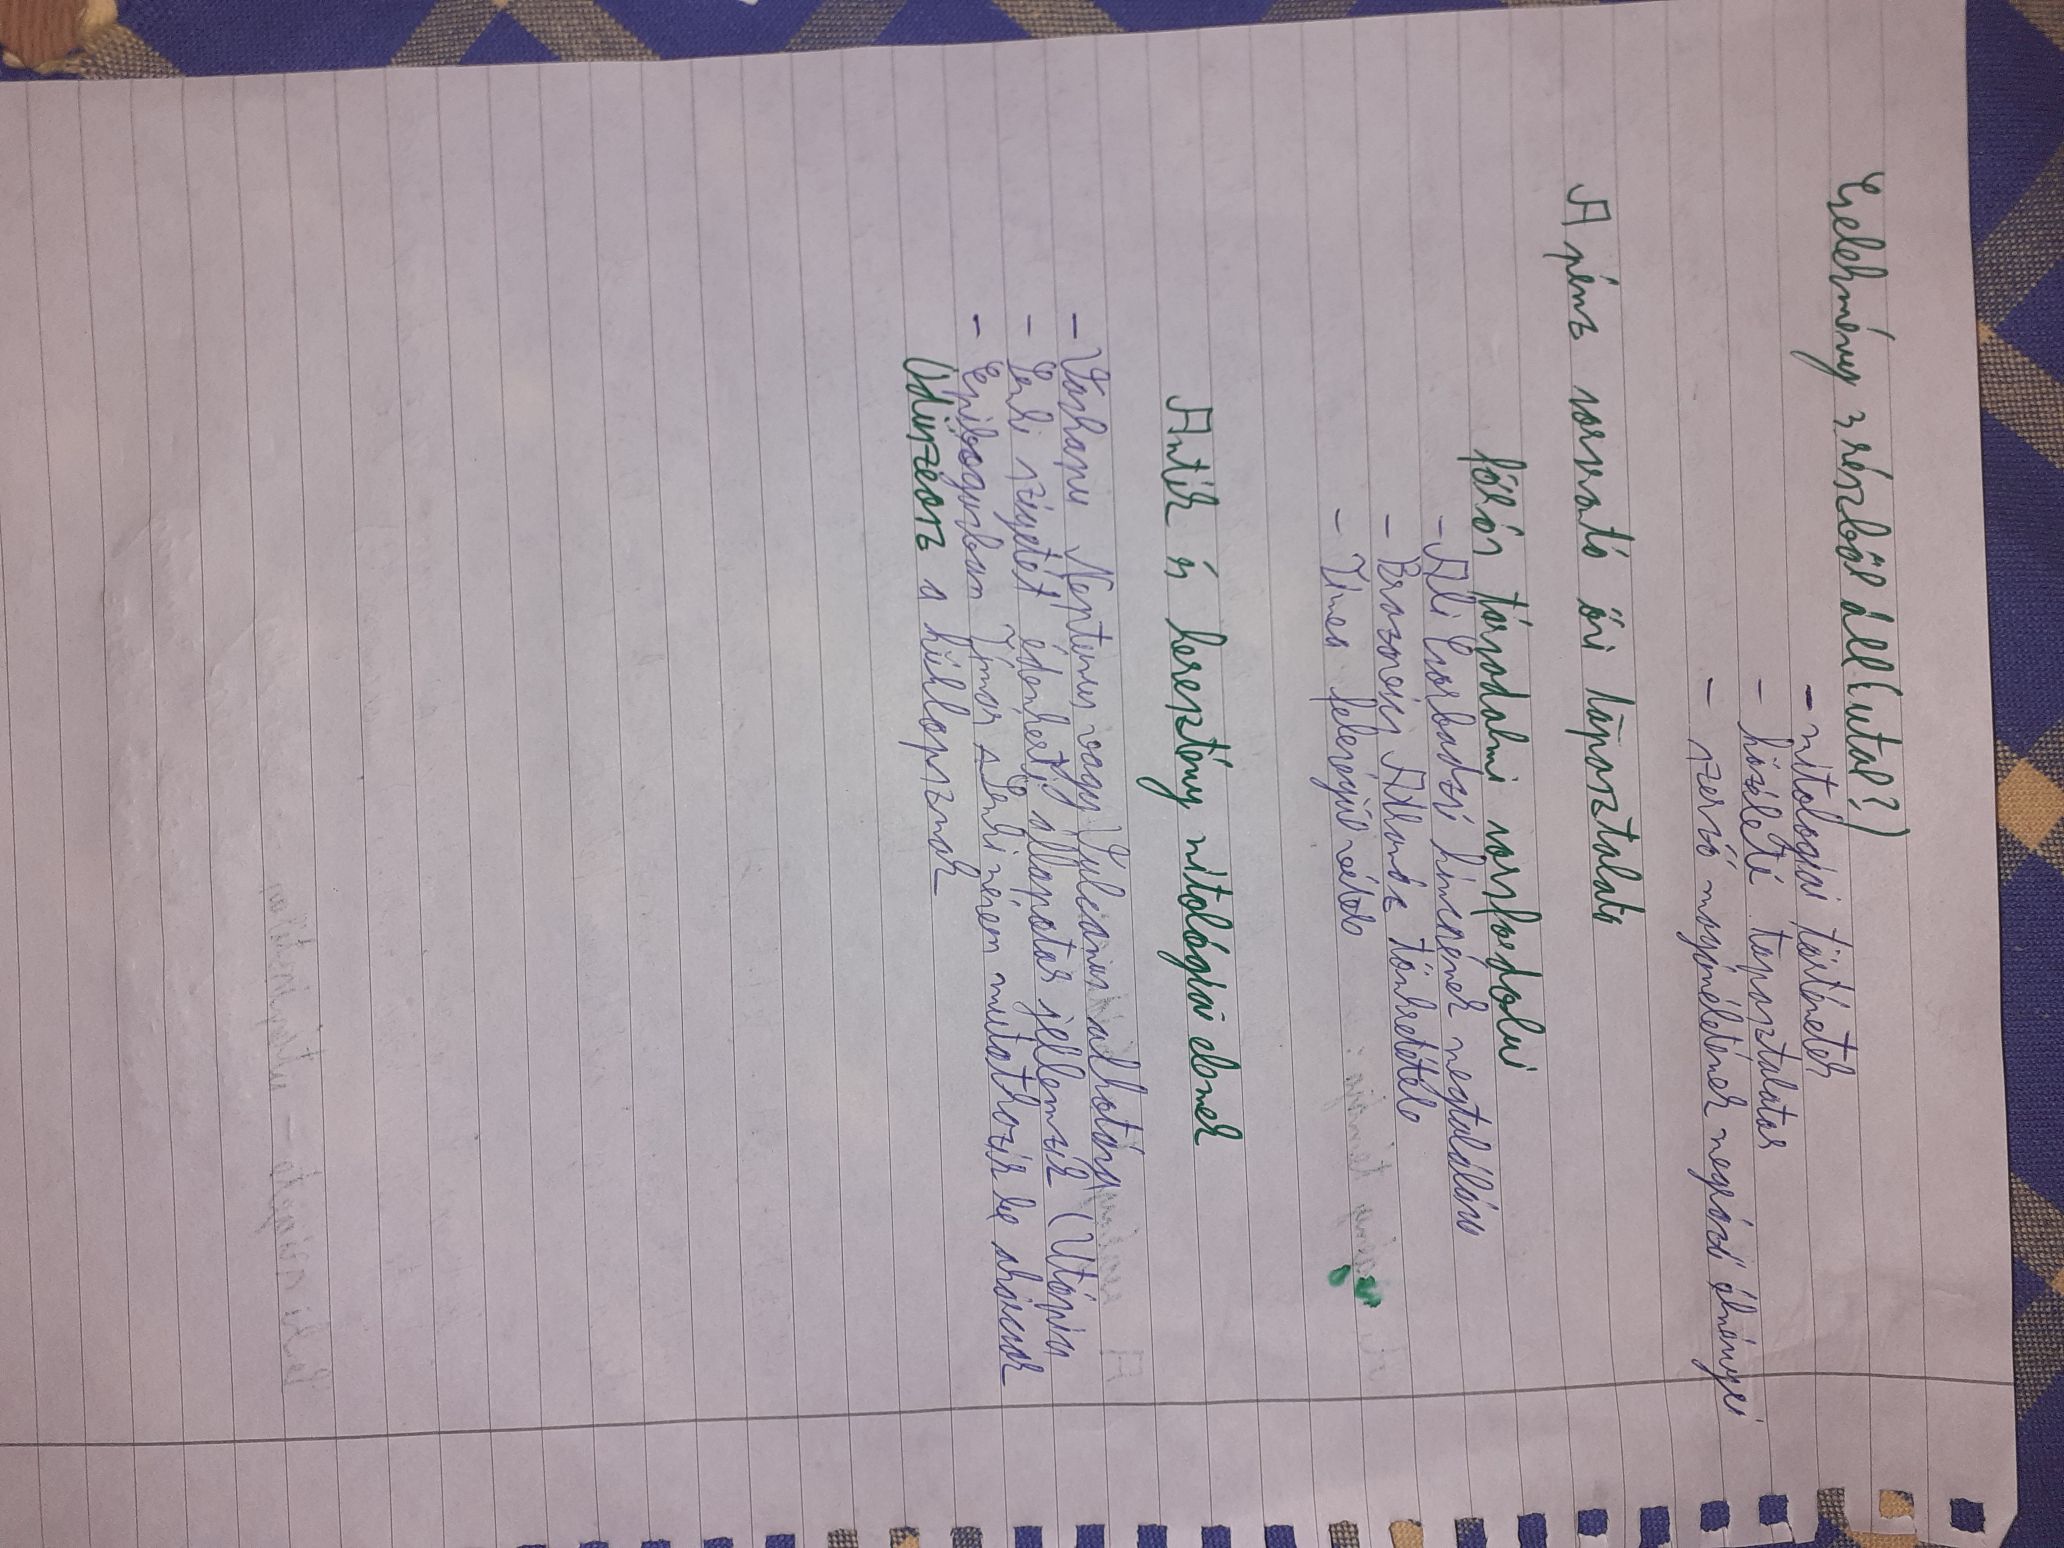 Cselekmény 3 részből áll (utal?)
- mitologiai történetek
- közéleti tapasztalatok
- szerző magánéletének megrázó élményei
A pénz sorsrontó ősi tapasztalata
főhős társadalmi sorsfordolui
- Ali Csorbadzsi kincsének megtalálása
- Brazovics Athanáz tönkretétele
- Tímea feleségül vétele
Antik és keresztény mitológiai elemek
- Vaskapu Neptunus vagy Vulcanus alkotása
- Senki szigetét édenkerti állapotok jellemzik (Utópia
- Epilogusban Tímár Senki néven mutatkozik be akárcsak
Odüszeosz a küklopsznak